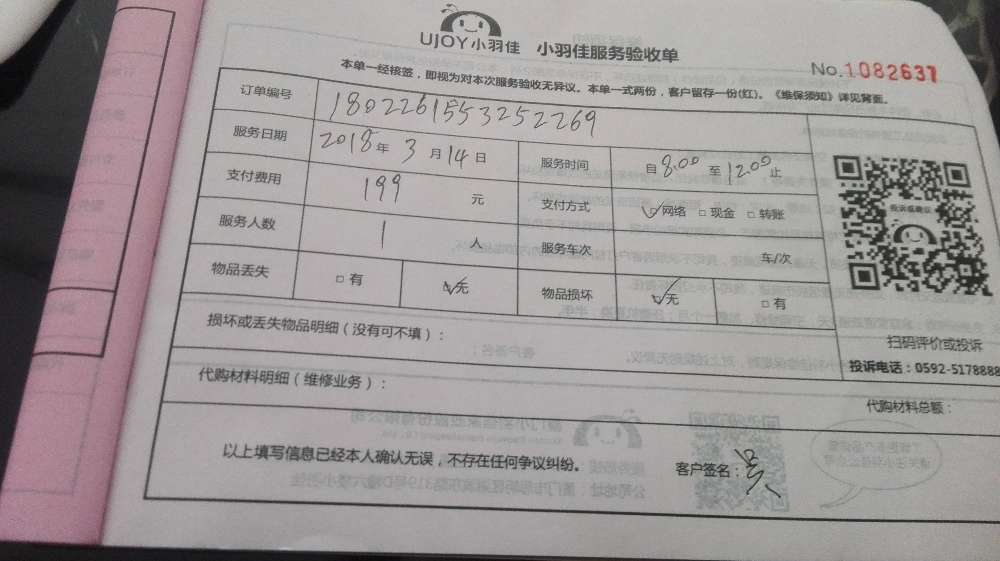 UJOY小羽佳 小羽佳服务验收单
No.1082637
本单一经核签，即视为对本次服务验收无异议。本单一式两份，客户留存一份(红)。《维保须知》详见背面。
订单编号 1802261553252269
服务日期 2018年 3月14日 服务时间 自8.00至12.00止
支付费用 199 元 支付方式 ☑网络 □现金 □转账
服务人数 1 人 服务车次 车/次
物品丢失 □有 ☑无 物品损坏 ☑无 □有
投诉或建议
扫码评价或投诉
投诉电话：0592-5178888
损坏或丢失物品明细（没有可不填）：
代购材料明细（维修业务）：
代购材料总额：
以上填写信息已经本人确认无误，不存在任何争议纠纷。 客户签名：